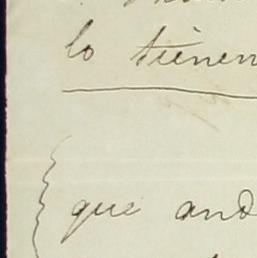 lo tienen
que and